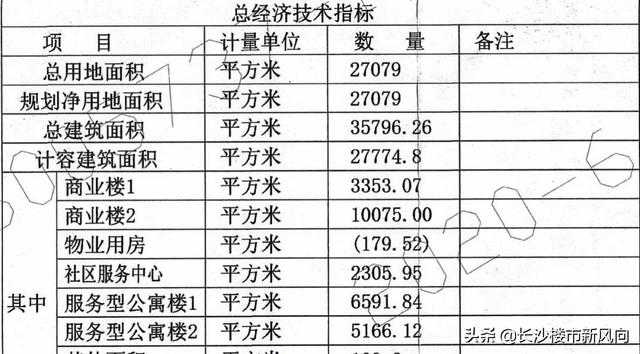 总经济技术指标
项 目 计量单位 数 量 备注
总用地面积 平方米 27079
规划净用地面积 平方米 27079
总建筑面积 平方米 35796.26
计容建筑面积 平方米 27774.8
其中
商业楼1 平方米 3353.07
商业楼2 平方米 10075.00
物业用房 平方米 (179.52)
社区服务中心 平方米 2305.95
服务型公寓楼1 平方米 6591.84
服务型公寓楼2 平方米 5166.12
2020-6
头条 @长沙楼市新风向